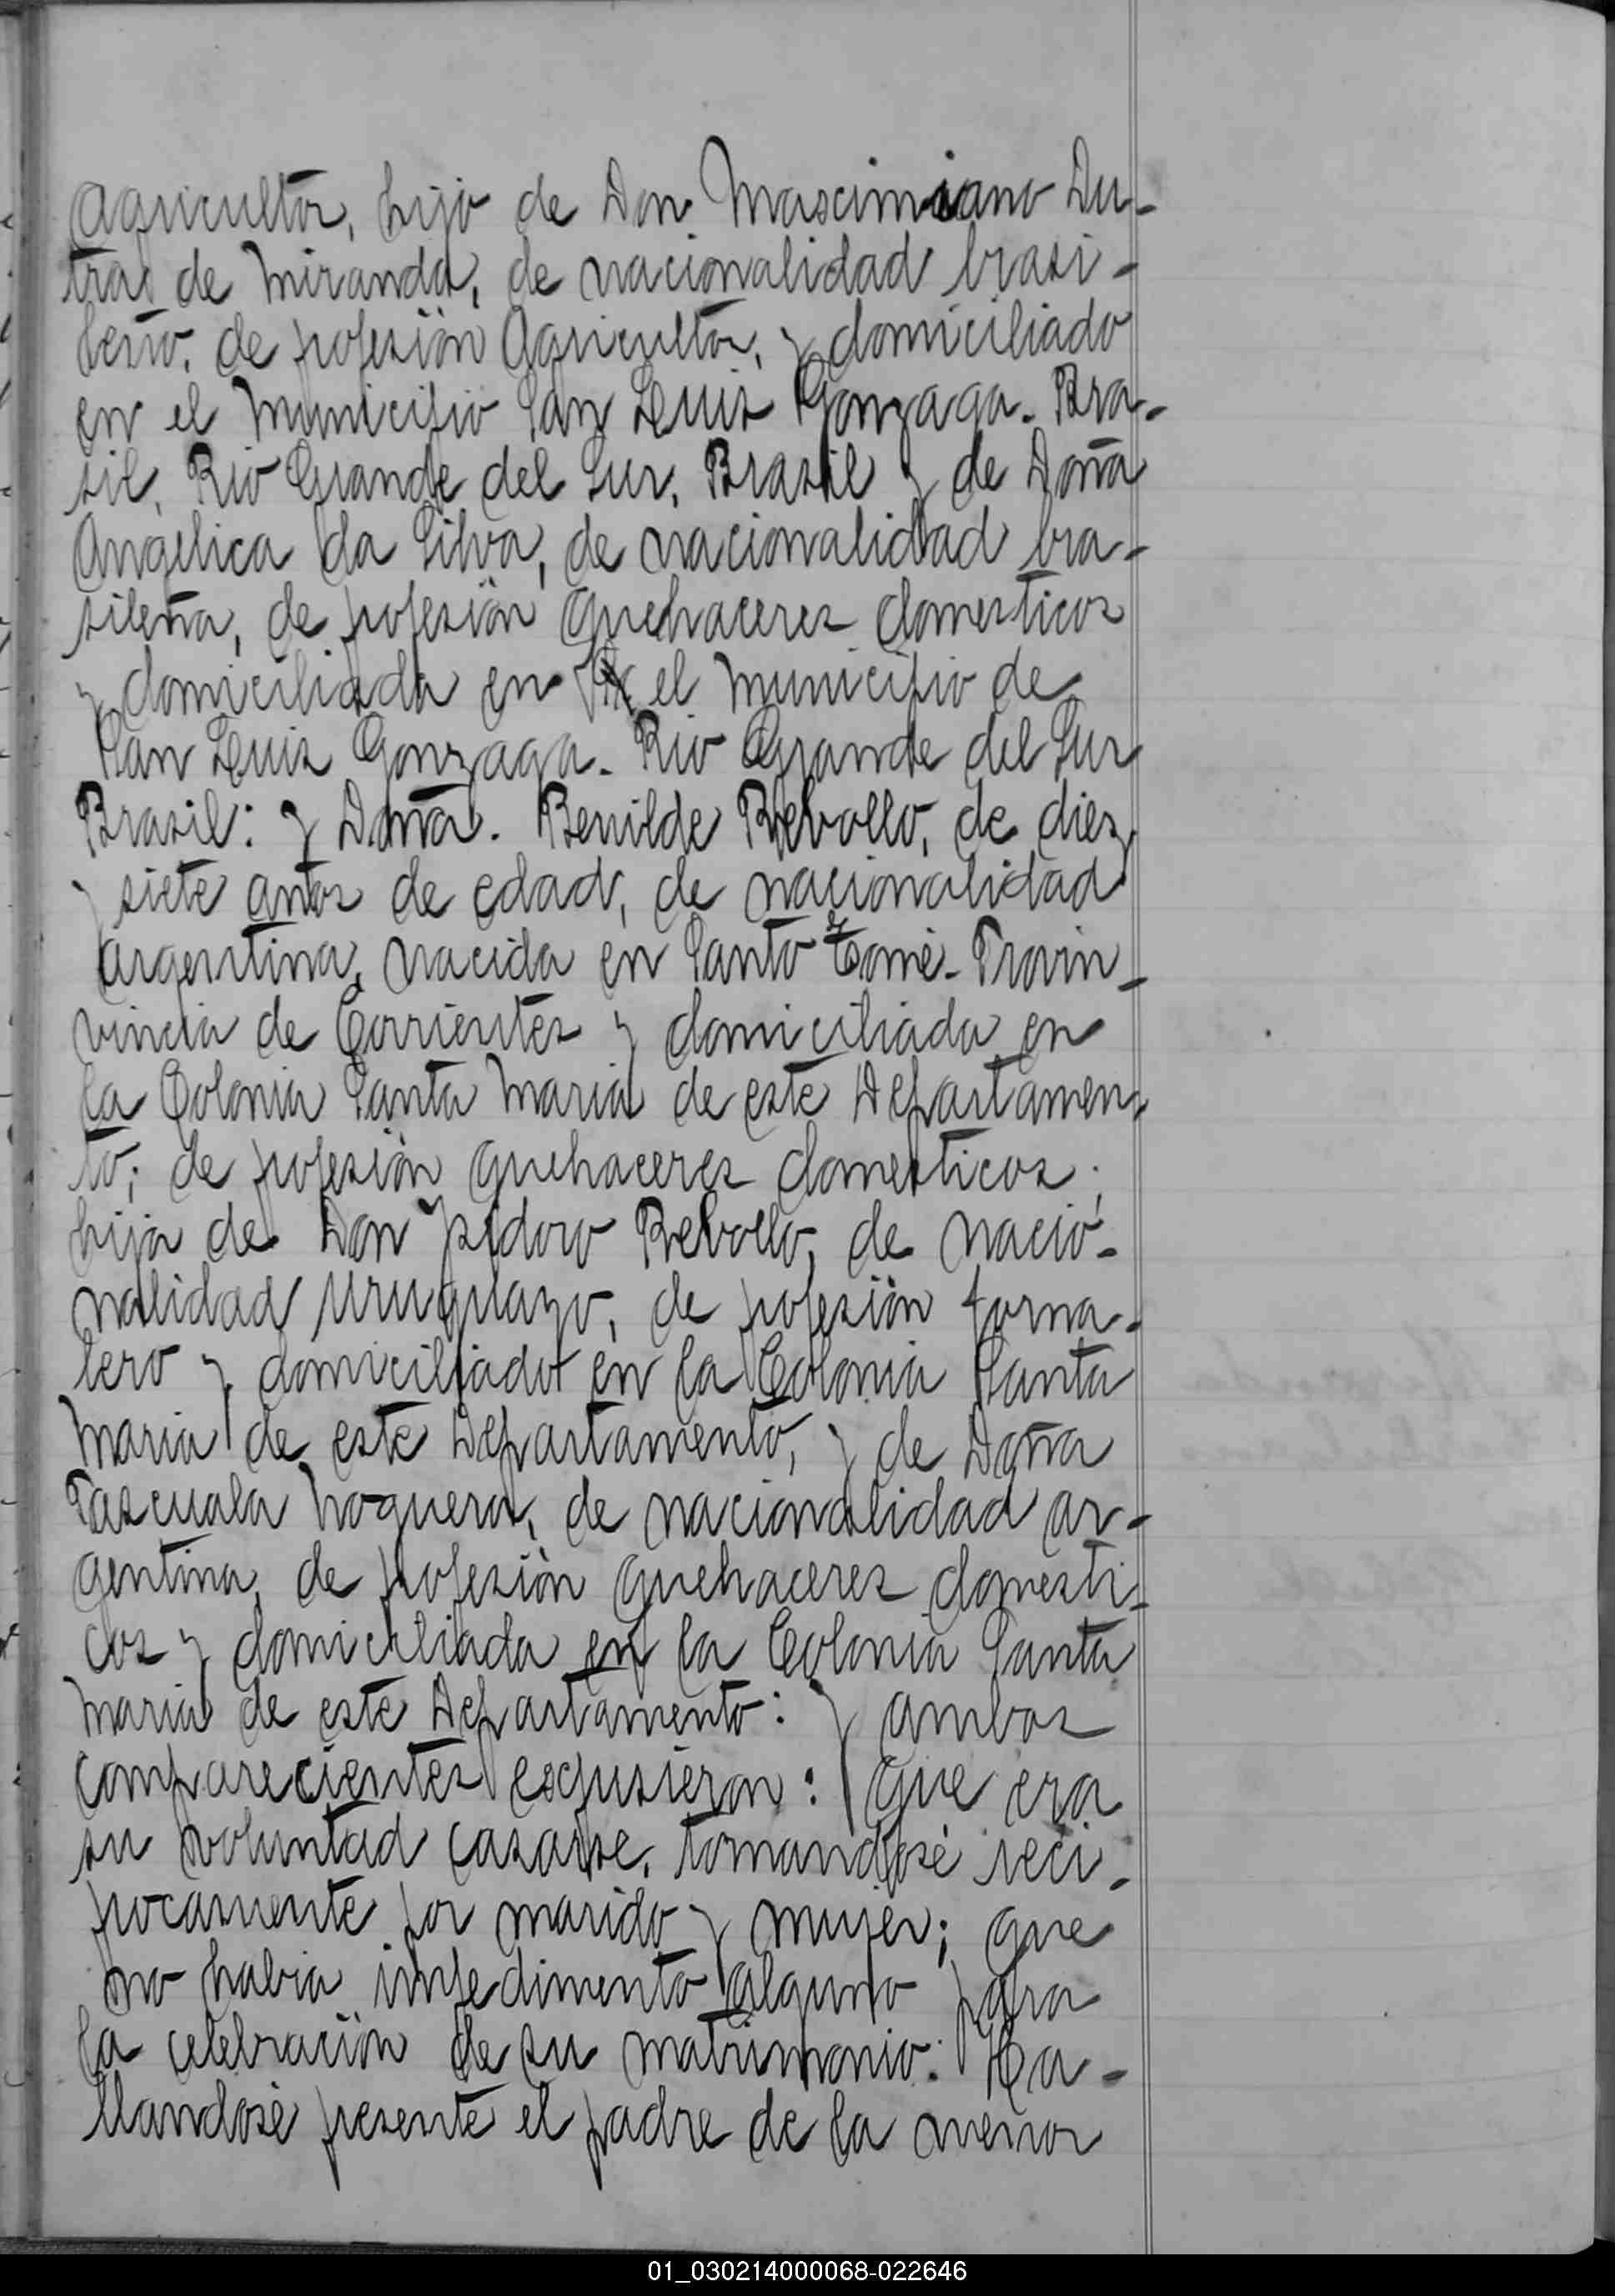 Agricultor, hijo de Don Mascimiano Du-
tra de Miranda, de nacionalidad brasi-
leño, de profesión Agricultor, y domiciliado
en el Municipio San Luis Gonzaga. Bra-
sil, Rio Grande del Sur, Brasil y de Doña
Angelica da Silva, de nacionalidad bra-
sileña, de profesión quehaceres domesticos
y domiciliada en el Municipio de
San Luis Gonzaga. Rio Grande del Sur
Brasil: y Doña. Benilde Rebollo, de diez
y siete años de edad, de nacionalidad
argentina, nacida en Santo Tomé. Provin-
vincia de Corrientes y domiciliada en
la Colonia Santa Maria de este Departamen-
to; de profesión quehaceres domesticos;
hija de Don Ysidoro Rebollo, de nacio-
nalidad Uruguayo, de profesión jorna-
lero y domiciliado en la Colonia Santa
Maria de este Departamento, y de Doña
Pascuala Noguera, de nacionalidad ar-
gentina, de profesión quehaceres domesti-
cos y domiciliada en la Colonia Santa
Maria de este Departamento: y ambos
comparecientes escpusieron: que era
su voluntad casarse, tomandosé reci-
procamente por marido y mujer; que
no habia impedimento alguno para
la celebración de su matrimonio: Ha-
llandosé presente el padre de la menor
01_030214000068-022646